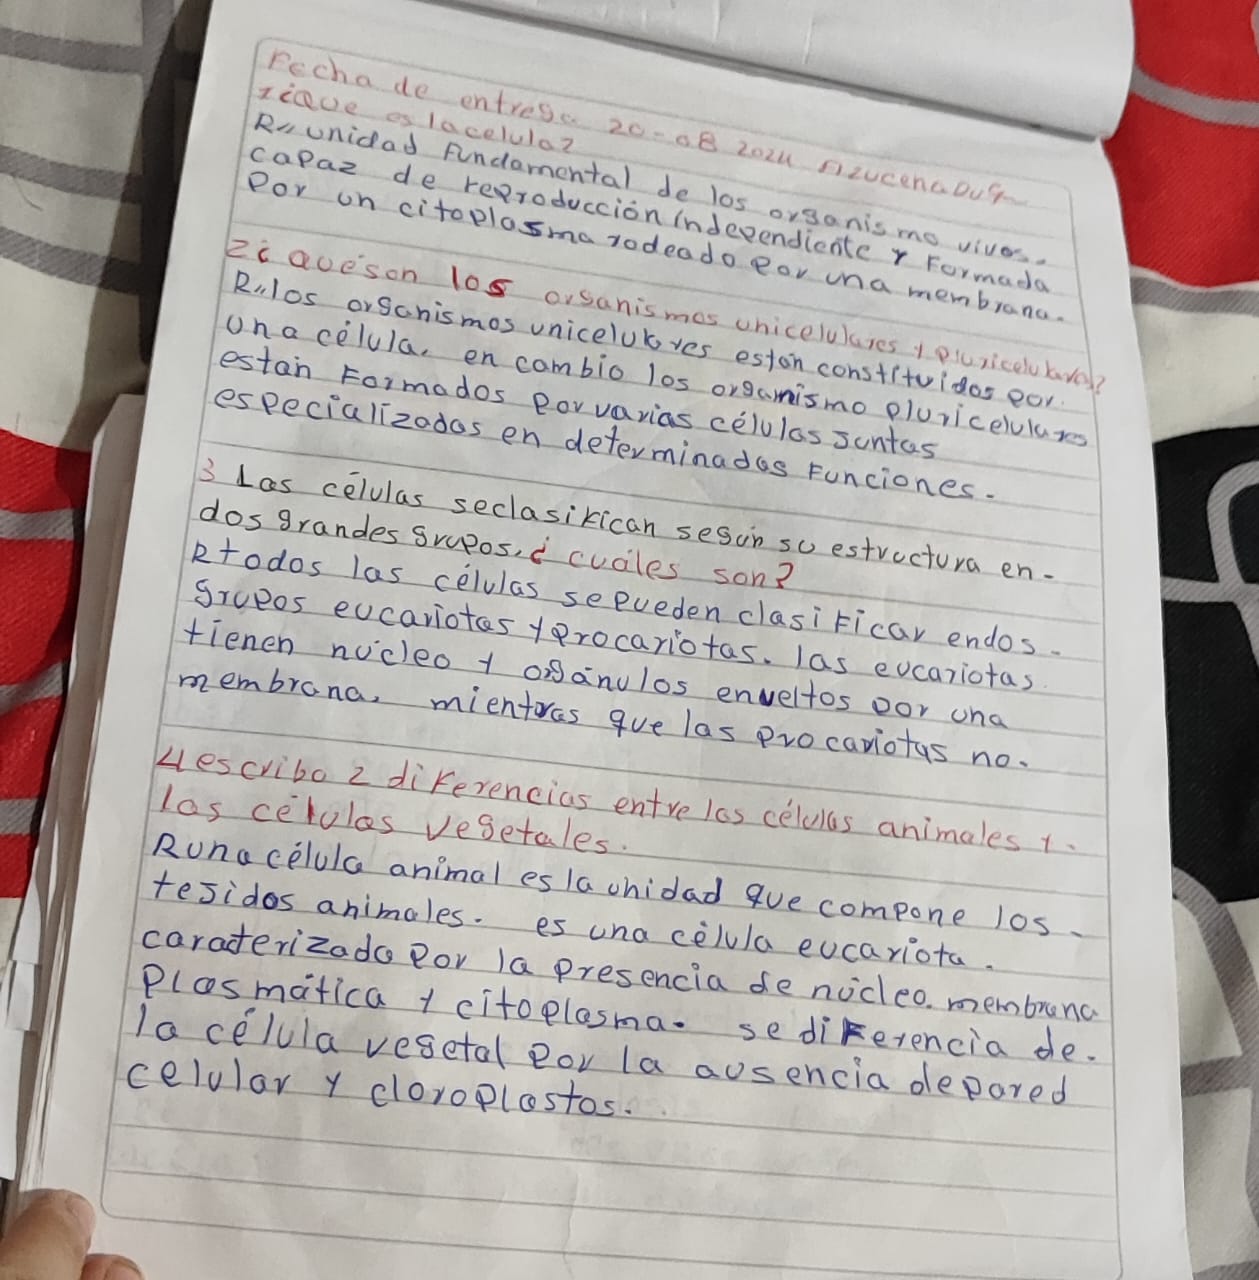 Fecha de entrega 20-08 2024 Azucena
1¿Que es la celula?
R// unidad Fundamental de los organismo vivos.
capaz de reproducción independiente y Formada
Por un citoplasma rodeado por una membrana.
2¿ que son los organismos unicelulares y pluricelulares?
R// los organismos unicelulares están constituidos por.
una célula, en cambio los organismo pluricelulares
están Formados por varias células juntas
especializadas en determinadas Funciones.
3 Las células se clasifican según su estructura en-
dos grandes grupos, ¿ cuáles son?
R todos las células se pueden clasificar en dos-
grupos eucariotas y procariotas. las eucariotas.
tienen núcleo y orgánulos enveltos por una
membrana, mientras que las procariotas no.
4 escribo 2 diferencias entre las células animales y.
las células vegetales.
R una célula animal es la unidad que compone los-
tejidos animales. es una célula eucariota.
caracterizado por la presencia de núcleo. membrana
Plasmática y citoplasma. se diferencia de.
la célula vegetal por la ausencia de pared
celular y cloroplastos.